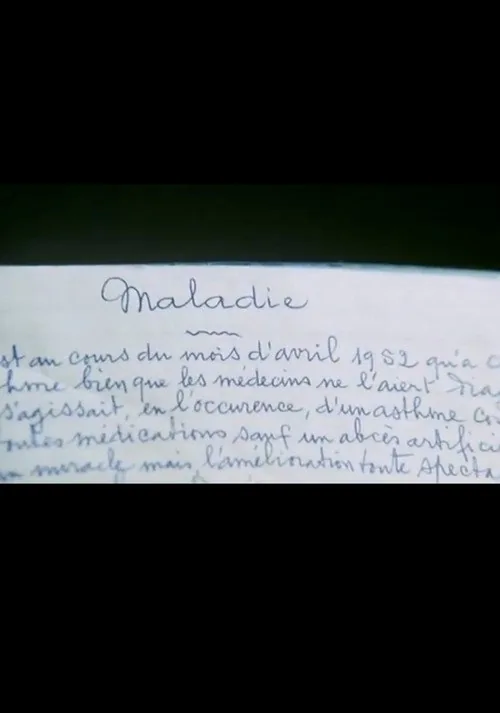 Maladie
st au cours du mois d'avril 1952 qu'a c
hme bien que les médecins ne l'aient dia
s'agissait, en l'occurence, d'un asthme co
outes médications sauf un abcès artific
n miracle mais l'amélioration toute specta